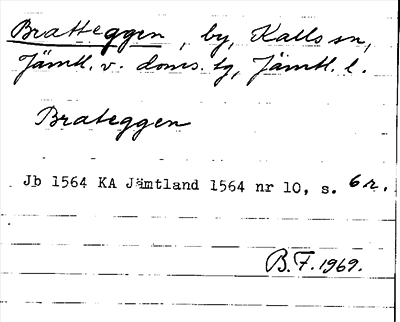 Bratteggen, by, Kalls sn,
Jämtl. v. doms. tg, Jämtl. l.
Brateggen
Jb 1564 KA Jämtland 1564 nr 10, s. 6 r.
B.F. 1969.